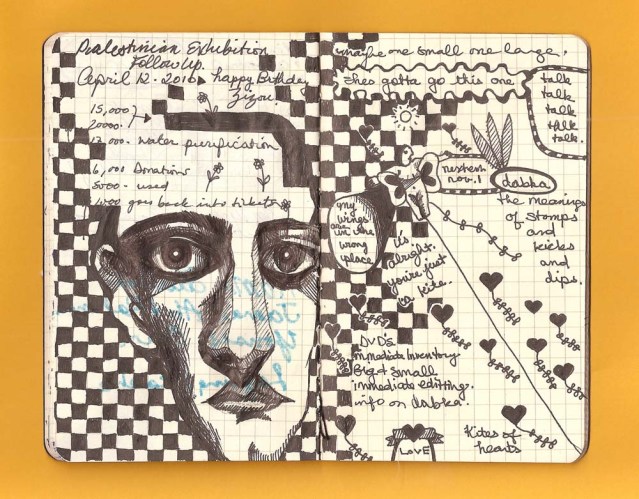 Palestinian Exhibition
Follow up.
April 12. 2010 happy Birthday
Zizou.
15,000
20000.
12,000 water purification
6,000 Donations
5000 - used
1000 goes back into tickets
maybe one small one large.
thes gotta go this one
talk
talk
talk
talk
talk.
nov. 1
dabka
the meanings
of stomps
and
kicks
and
dips.
my
wings
are
in the
wrong
place
it's
alright.
you're just
a kite.
DVDs
immediate Inventory
Big & Small
immediate editting.
info on dabka.
LOVE
Kites of
hearts